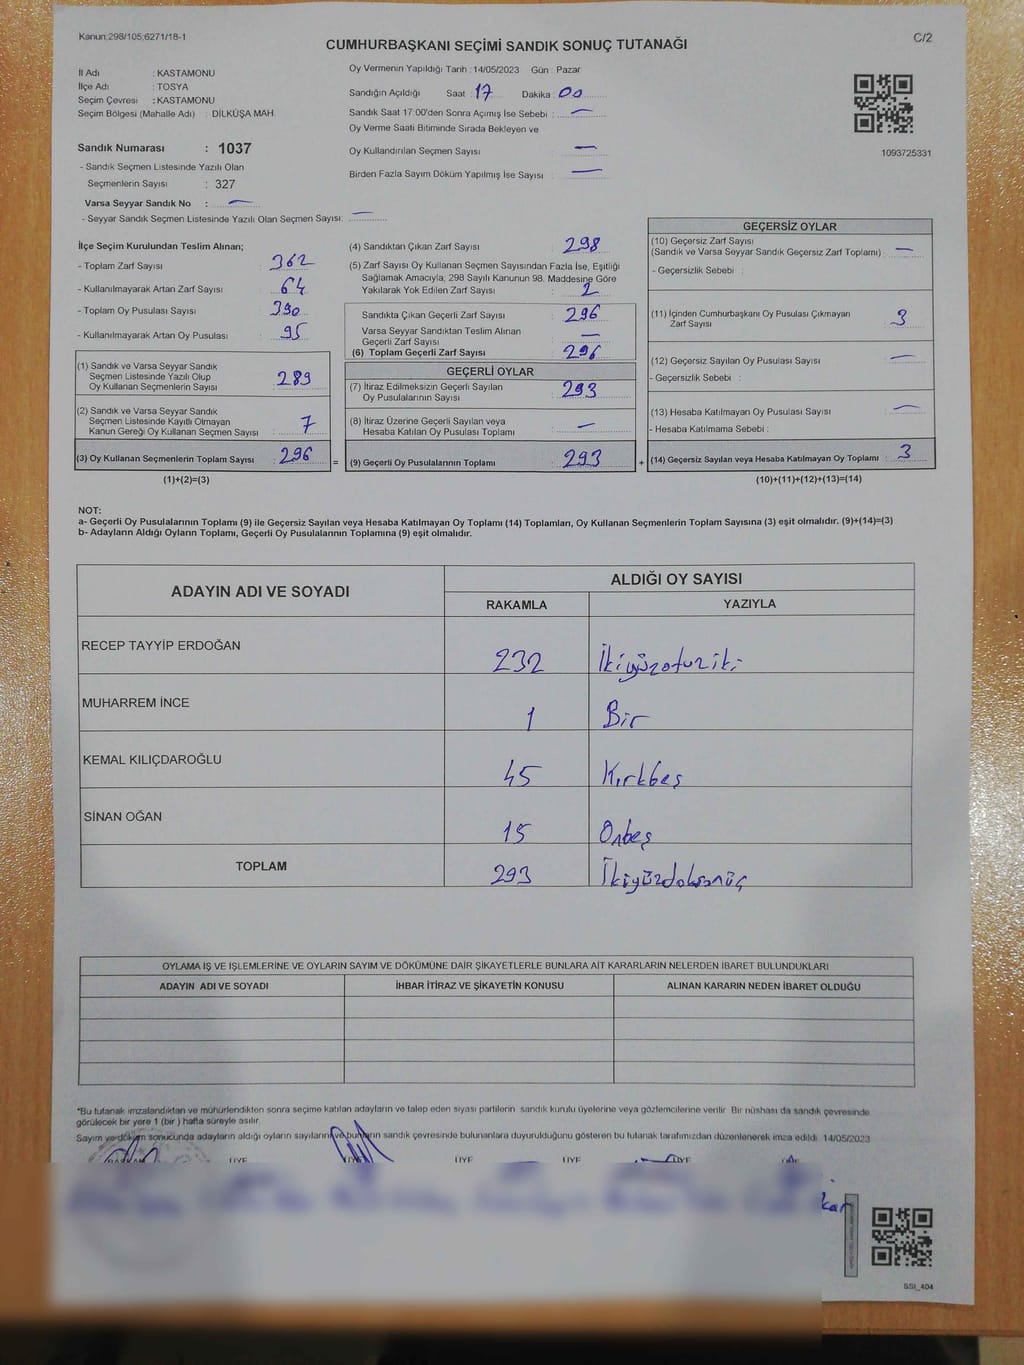 Kanun:298/105;6271/18-1
C/2
CUMHURBAŞKANI SEÇİMİ SANDIK SONUÇ TUTANAĞI
İl Adı : KASTAMONU
İlçe Adı : TOSYA
Seçim Çevresi : KASTAMONU
Seçim Bölgesi (Mahalle Adı) : DİLKÜŞA MAH.
Sandık Numarası : 1037
- Sandık Seçmen Listesinde Yazılı Olan
Seçmenlerin Sayısı : 327
Varsa Seyyar Sandık No : —
- Seyyar Sandık Seçmen Listesinde Yazılı Olan Seçmen Sayısı: —
Oy Vermenin Yapıldığı Tarih : 14/05/2023 Gün : Pazar
Sandığın Açıldığı Saat : 17 Dakika : 00
Sandık Saat 17:00'den Sonra Açımış İse Sebebi : —
Oy Verme Saati Bitiminde Sırada Bekleyen ve
Oy Kullandırılan Seçmen Sayısı : —
Birden Fazla Sayım Döküm Yapılmış İse Sayısı : —
1093725331
İlçe Seçim Kurulundan Teslim Alınan;
- Toplam Zarf Sayısı : 362
- Kullanılmayarak Artan Zarf Sayısı : 64
- Toplam Oy Pusulası Sayısı : 390
- Kullanılmayarak Artan Oy Pusulası : 95
(1) Sandık ve Varsa Seyyar Sandık
Seçmen Listesinde Yazılı Olup
Oy Kullanan Seçmenlerin Sayısı : 289
(2) Sandık ve Varsa Seyyar Sandık
Seçmen Listesinde Kayıtlı Olmayan
Kanun Gereği Oy Kullanan Seçmen Sayısı : 7
(3) Oy Kullanan Seçmenlerin Toplam Sayısı : 296
(1)+(2)=(3)
(4) Sandıktan Çıkan Zarf Sayısı : 298
(5) Zarf Sayısı Oy Kullanan Seçmen Sayısından Fazla İse, Eşitliği
Sağlamak Amacıyla; 298 Sayılı Kanunun 98. Maddesine Göre
Yakılarak Yok Edilen Zarf Sayısı : 2
Sandıkta Çıkan Geçerli Zarf Sayısı : 296
Varsa Seyyar Sandıktan Teslim Alınan
Geçerli Zarf Sayısı : —
(6) Toplam Geçerli Zarf Sayısı : 296
GEÇERLİ OYLAR
(7) İtiraz Edilmeksizin Geçerli Sayılan
Oy Pusulalarının Sayısı : 293
(8) İtiraz Üzerine Geçerli Sayılan veya
Hesaba Katılan Oy Pusulası Toplamı : —
= (9) Geçerli Oy Pusulalarının Toplamı : 293
GEÇERSİZ OYLAR
(10) Geçersiz Zarf Sayısı
(Sandık ve Varsa Seyyar Sandık Geçersiz Zarf Toplamı) : —
- Geçersizlik Sebebi :
(11) İçinden Cumhurbaşkanı Oy Pusulası Çıkmayan
Zarf Sayısı : 3
(12) Geçersiz Sayılan Oy Pusulası Sayısı : —
- Geçersizlik Sebebi :
(13) Hesaba Katılmayan Oy Pusulası Sayısı : —
- Hesaba Katılmama Sebebi :
+ (14) Geçersiz Sayılan veya Hesaba Katılmayan Oy Toplamı : 3
(10)+(11)+(12)+(13)=(14)
NOT:
a- Geçerli Oy Pusulalarının Toplamı (9) ile Geçersiz Sayılan veya Hesaba Katılmayan Oy Toplamı (14) Toplamları, Oy Kullanan Seçmenlerin Toplam Sayısına (3) eşit olmalıdır. (9)+(14)=(3)
b- Adayların Aldığı Oyların Toplamı, Geçerli Oy Pusulalarının Toplamına (9) eşit olmalıdır.
ADAYIN ADI VE SOYADI
ALDIĞI OY SAYISI
RAKAMLA YAZIYLA
RECEP TAYYİP ERDOĞAN 232 İkiyüzotuziki
MUHARREM İNCE 1 Bir
KEMAL KILIÇDAROĞLU 45 Kırkbeş
SİNAN OĞAN 15 Onbeş
TOPLAM 293 İkiyüzdoksanüç
OYLAMA İŞ VE İŞLEMLERİNE VE OYLARIN SAYIM VE DÖKÜMÜNE DAİR ŞİKAYETLERLE BUNLARA AİT KARARLARIN NELERDEN İBARET BULUNDUKLARI
ADAYIN ADI VE SOYADI İHBAR İTİRAZ VE ŞİKAYETİN KONUSU ALINAN KARARIN NEDEN İBARET OLDUĞU
*Bu tutanak imzalandıktan ve mühürlendikten sonra seçime katılan adayların ve talep eden siyasi partilerin sandık kurulu üyelerine veya gözlemcilerine verilir. Bir nüshası da sandık çevresinde
görülecek bir yere 1 (bir) hafta süreyle asılır.
Sayım ve döküm sonucunda adayların aldığı oyların sayıları ve bunların sandık çevresinde bulunanlara duyurulduğunu gösteren bu tutanak tarafımızdan düzenlenerek imza edildi. 14/05/2023
BAŞKAN ÜYE ÜYE ÜYE ÜYE ÜYE
SSI_404